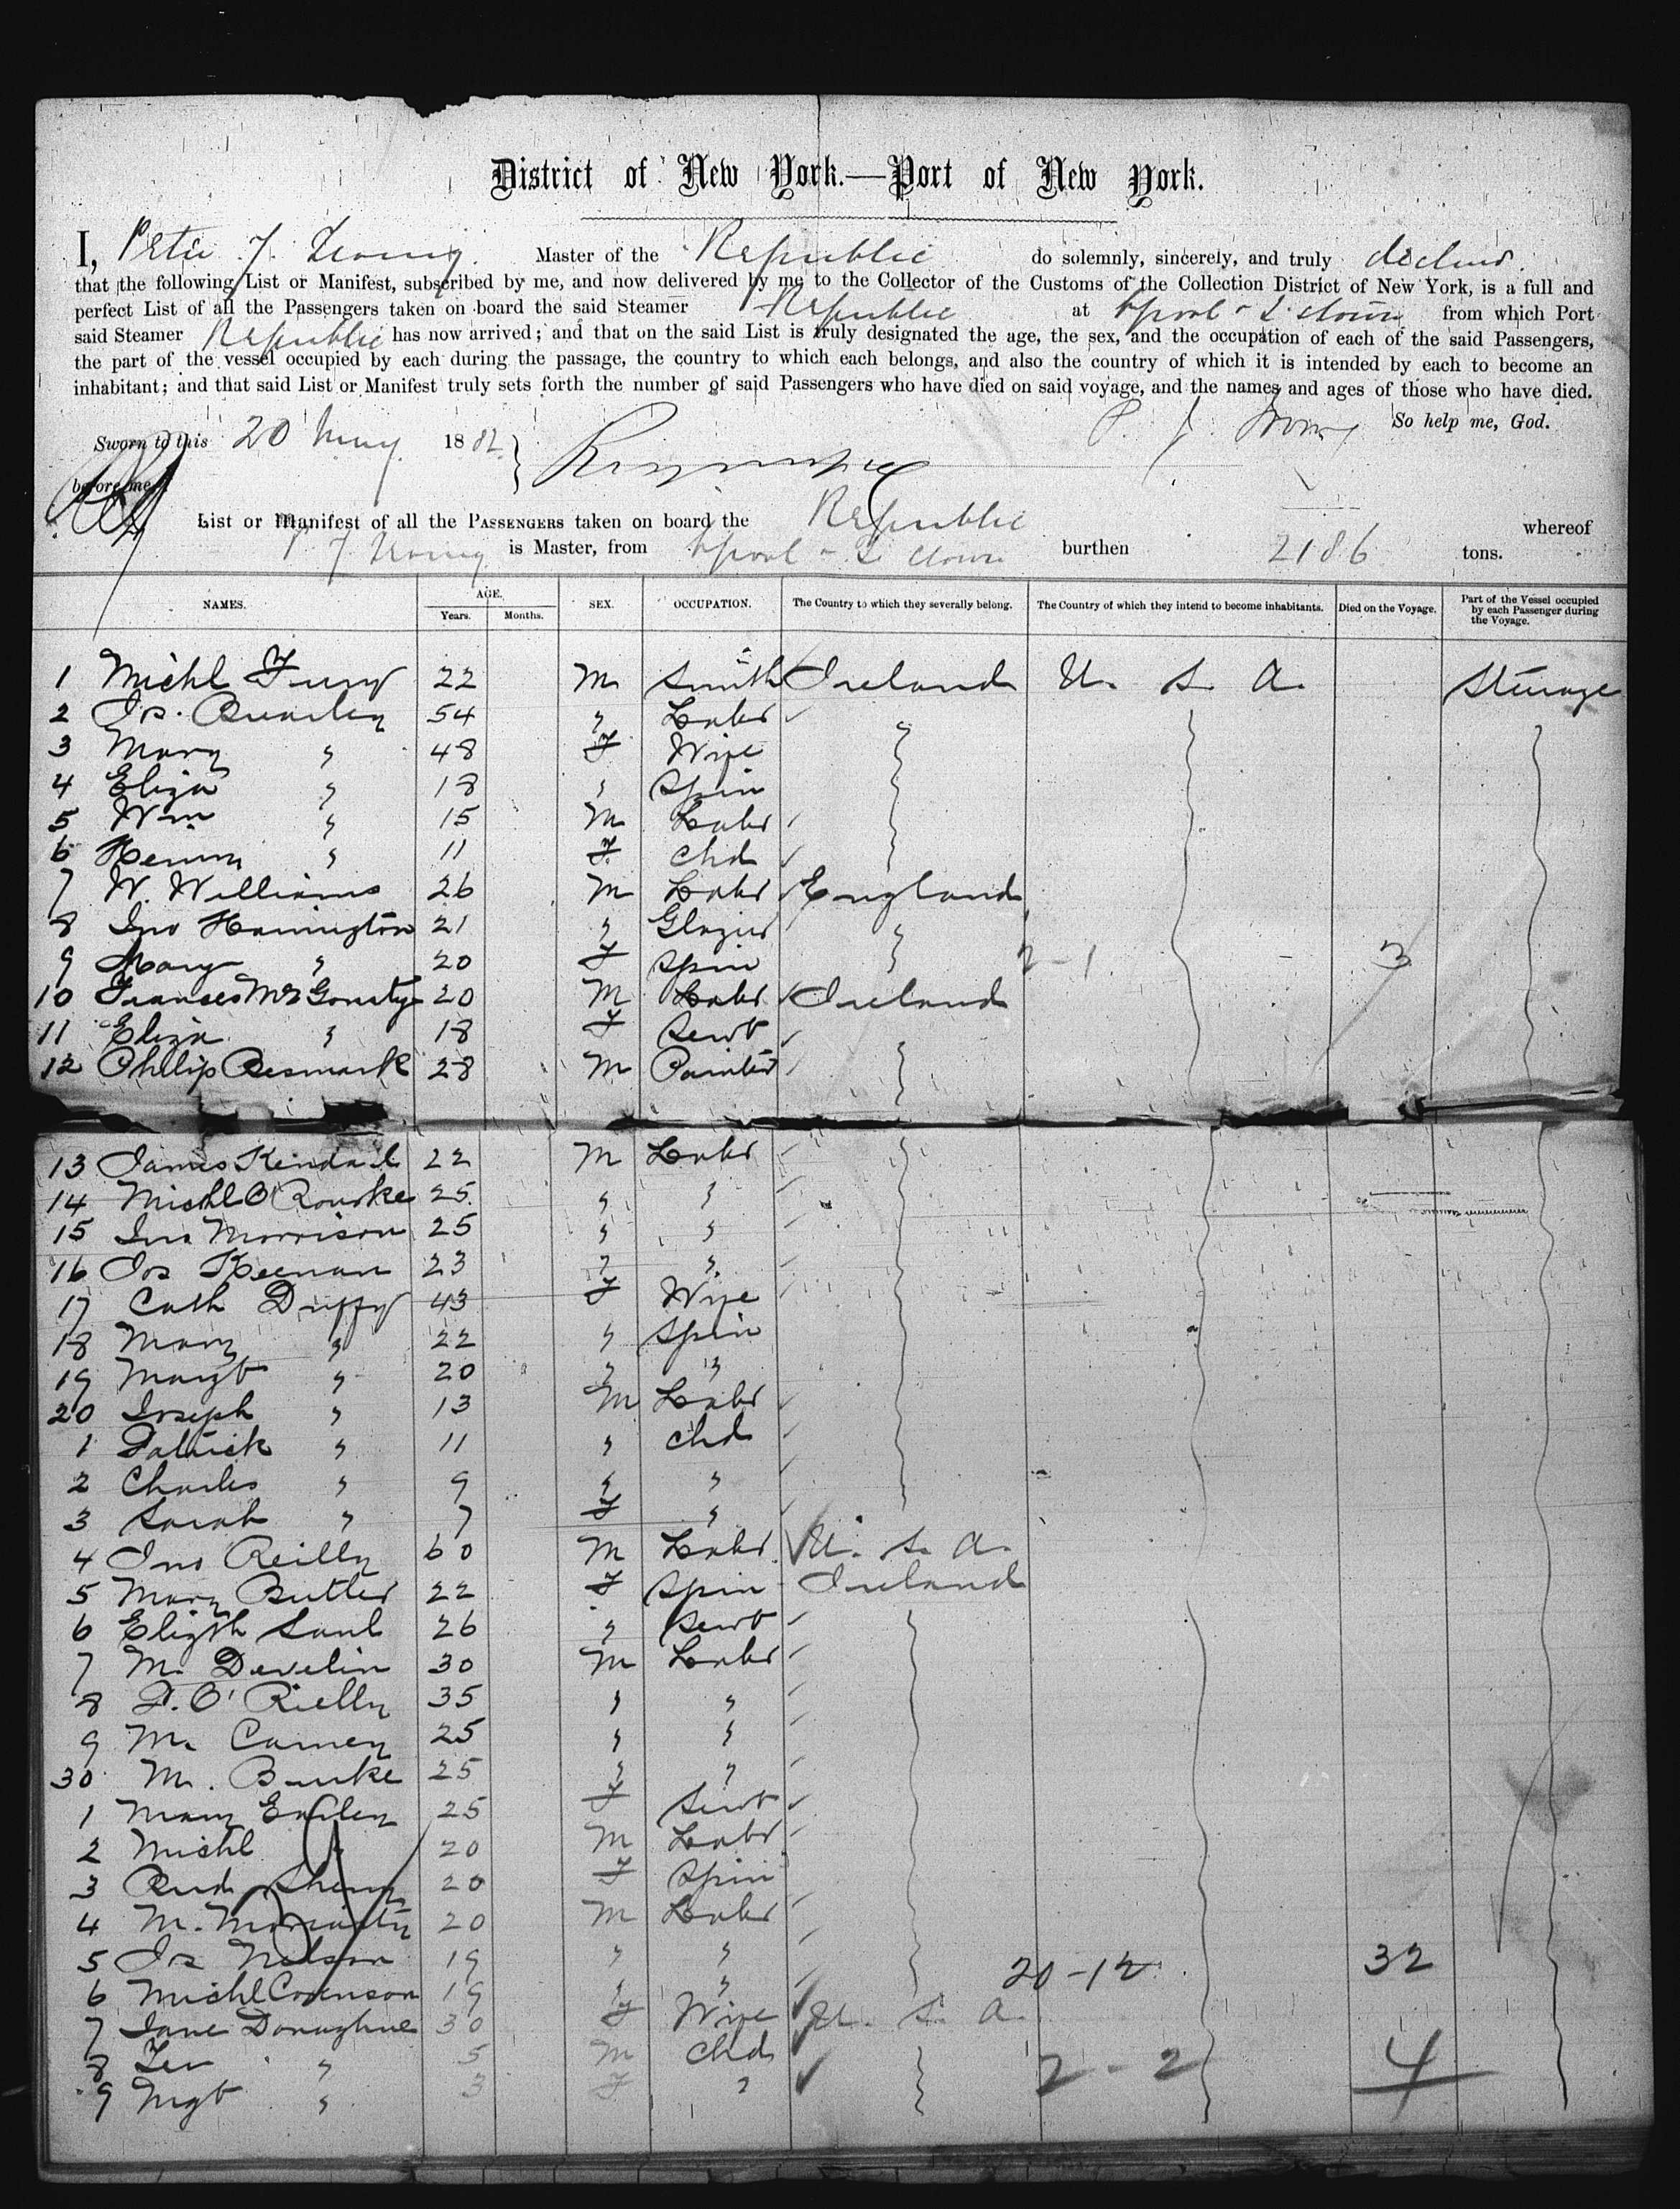 District of New York.—Port of New York.
I, Peter J. Irving Master of the Republic do solemnly, sincerely, and truly declare
that the following List or Manifest, subscribed by me, and now delivered by me to the Collector of the Customs of the Collection District of New York, is a full and
perfect List of all the Passengers taken on board the said Steamer Republic at Lpool & Q. town from which Port
said Steamer Republic has now arrived; and that on the said List is truly designated the age, the sex, and the occupation of each of the said Passengers,
the part of the vessel occupied by each during the passage, the country to which each belongs, and also the country of which it is intended by each to become an
inhabitant; and that said List or Manifest truly sets forth the number of said Passengers who have died on said voyage, and the names and ages of those who have died.
So help me, God.
Sworn to this 20 May 1882
before me
List or Manifest of all the PASSENGERS taken on board the Republic whereof
is Master, from Lpool & Q. town burthen 2186 tons.
NAMES. AGE. Years. Months. SEX. OCCUPATION. The Country to which they severally belong. The Country of which they intend to become inhabitants. Died on the Voyage. Part of the Vessel occupied by each Passenger during the Voyage.
1 Michl Fury 22 M Smith Ireland U. S. A. Steerage
2 Jos. 54 " Labr
3 Mary " 48 F Wife
4 Eliza " 18 " Spin
5 Wm " 15 M Labr
6 " 11 F. Chd
7 W. Williams 26 M Labr England
8 Jno Hanington 21 " Glazier
9 Mary " 20 F Spin 2-1 3
10 Frances 20 M Labr Ireland
11 Eliza " 18 F Servt
12 Philip Besmark 28 M Painter
13 James Kendall 22 M Labr
14 Michl O'Rourke 25 " "
15 Jno Morrison 25 " "
16 Jos Keenan 23 " "
17 Cath Duffy 43 F Wife
18 Mary " 22 " Spin
19 Margt " 20 " "
20 Joseph " 13 M Labr
1 Patrick " 11 " Chd
2 Charles " 9 " "
3 Sarah " 7 F "
4 Jno Reilly 60 M Labr U. S. A.
5 Mary Butler 22 F Spin Ireland
6 Elizth Saul 26 " Servt
7 M. Develin 30 M Labr
8 O'Rielly 35 " "
9 M. Carney 25 " "
30 M. Burke 25 " "
1 Mary 25 F Servt
2 Michl " 20 M Labr
3 20 F Spin
4 M. Moriarty 20 M Labr
5 Jos Nelson 19 " " 20-12 32
6 Michl 19 " "
7 Jane Donaghue 30 F Wife U. S. A.
8 " 5 M Chd 2-2 4
9 Mgt " 3 F "